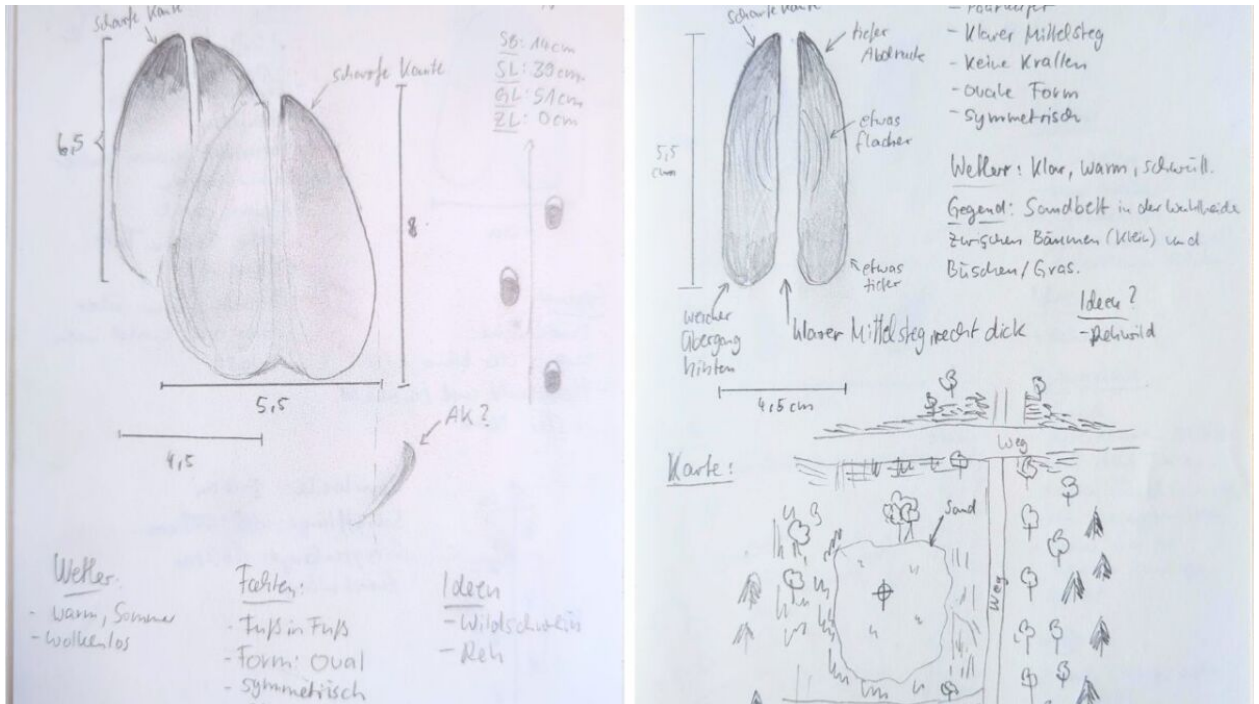 scharfe Kante
scharfe Kante
6,5
8
5,5
4,5
SB: 14cm
SL: 39cm
GL: 51cm
ZL: 0cm
AK?
Wetter:
- warm, Sommer
- wolkenlos
Fährten:
- Fuß in Fuß
- Form: oval
- symmetrisch
Ideen
- Wildschwein
- Reh
scharfe Kante
tiefer
Abdruck
etwas
flacher
etwas
tiefer
5,5
cm
weicher
Übergang
hinten
klarer Mittelsteg recht dick
4,5cm
- Paarhufer
- Klarer Mittelsteg
- Keine Krallen
- ovale Form
- symmetrisch
Wetter: Klar, warm, schwül.
Gegend: Sandbett in der Wahlheide
zwischen Bäumen (klein) und
Büschen/Gras.
Ideen?
- Rehwild
Karte:
Weg
Sand
Weg